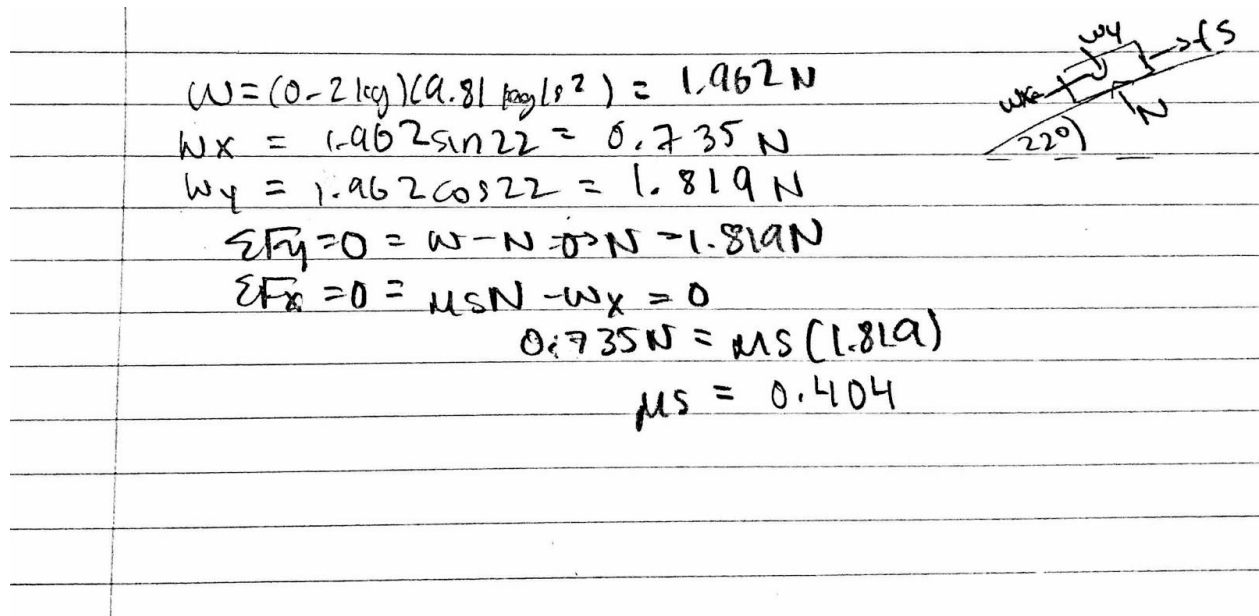 W = (0.2 kg)(9.81 kg/s²) = 1.962 N
Wx = 1.962 sin 22 = 0.735 N
Wy = 1.962 cos 22 = 1.819 N
ΣFy = 0 = W - N = 0 → N = 1.819 N
ΣFx = 0 = μsN - Wx = 0
0.735 N = μs (1.819)
μs = 0.404
Wy
fs
Wx
N
22°